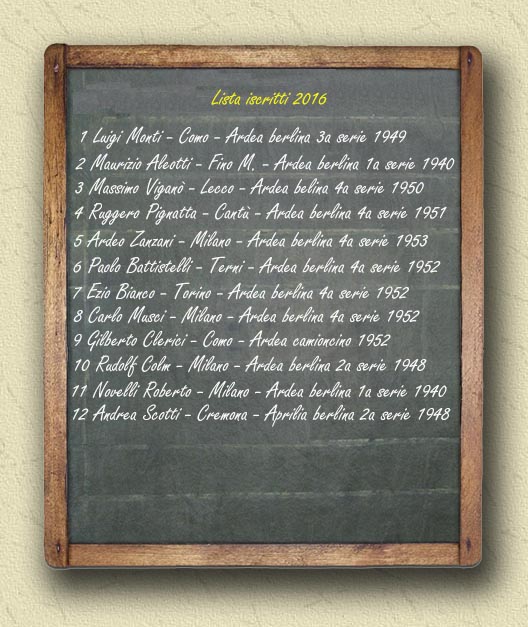 Lista iscritti 2016
1 Luigi Monti - Como - Ardea berlina 3a serie 1949
2 Maurizio Aleotti - Fino M. - Ardea berlina 1a serie 1940
3 Massimo Viganò - Lecco - Ardea belina 4a serie 1950
4 Ruggero Pignatta - Cantù - Ardea berlina 4a serie 1951
5 Ardeo Zanzani - Milano - Ardea berlina 4a serie 1953
6 Paolo Battistelli - Terni - Ardea berlina 4a serie 1952
7 Ezio Bianco - Torino - Ardea berlina 4a serie 1952
8 Carlo Musci - Milano - Ardea berlina 4a serie 1952
9 Gilberto Clerici - Como - Ardea camioncino 1952
10 Rudolf Colm - Milano - Ardea berlina 2a serie 1948
11 Novelli Roberto - Milano - Ardea berlina 1a serie 1940
12 Andrea Scotti - Cremona - Aprilia berlina 2a serie 1948